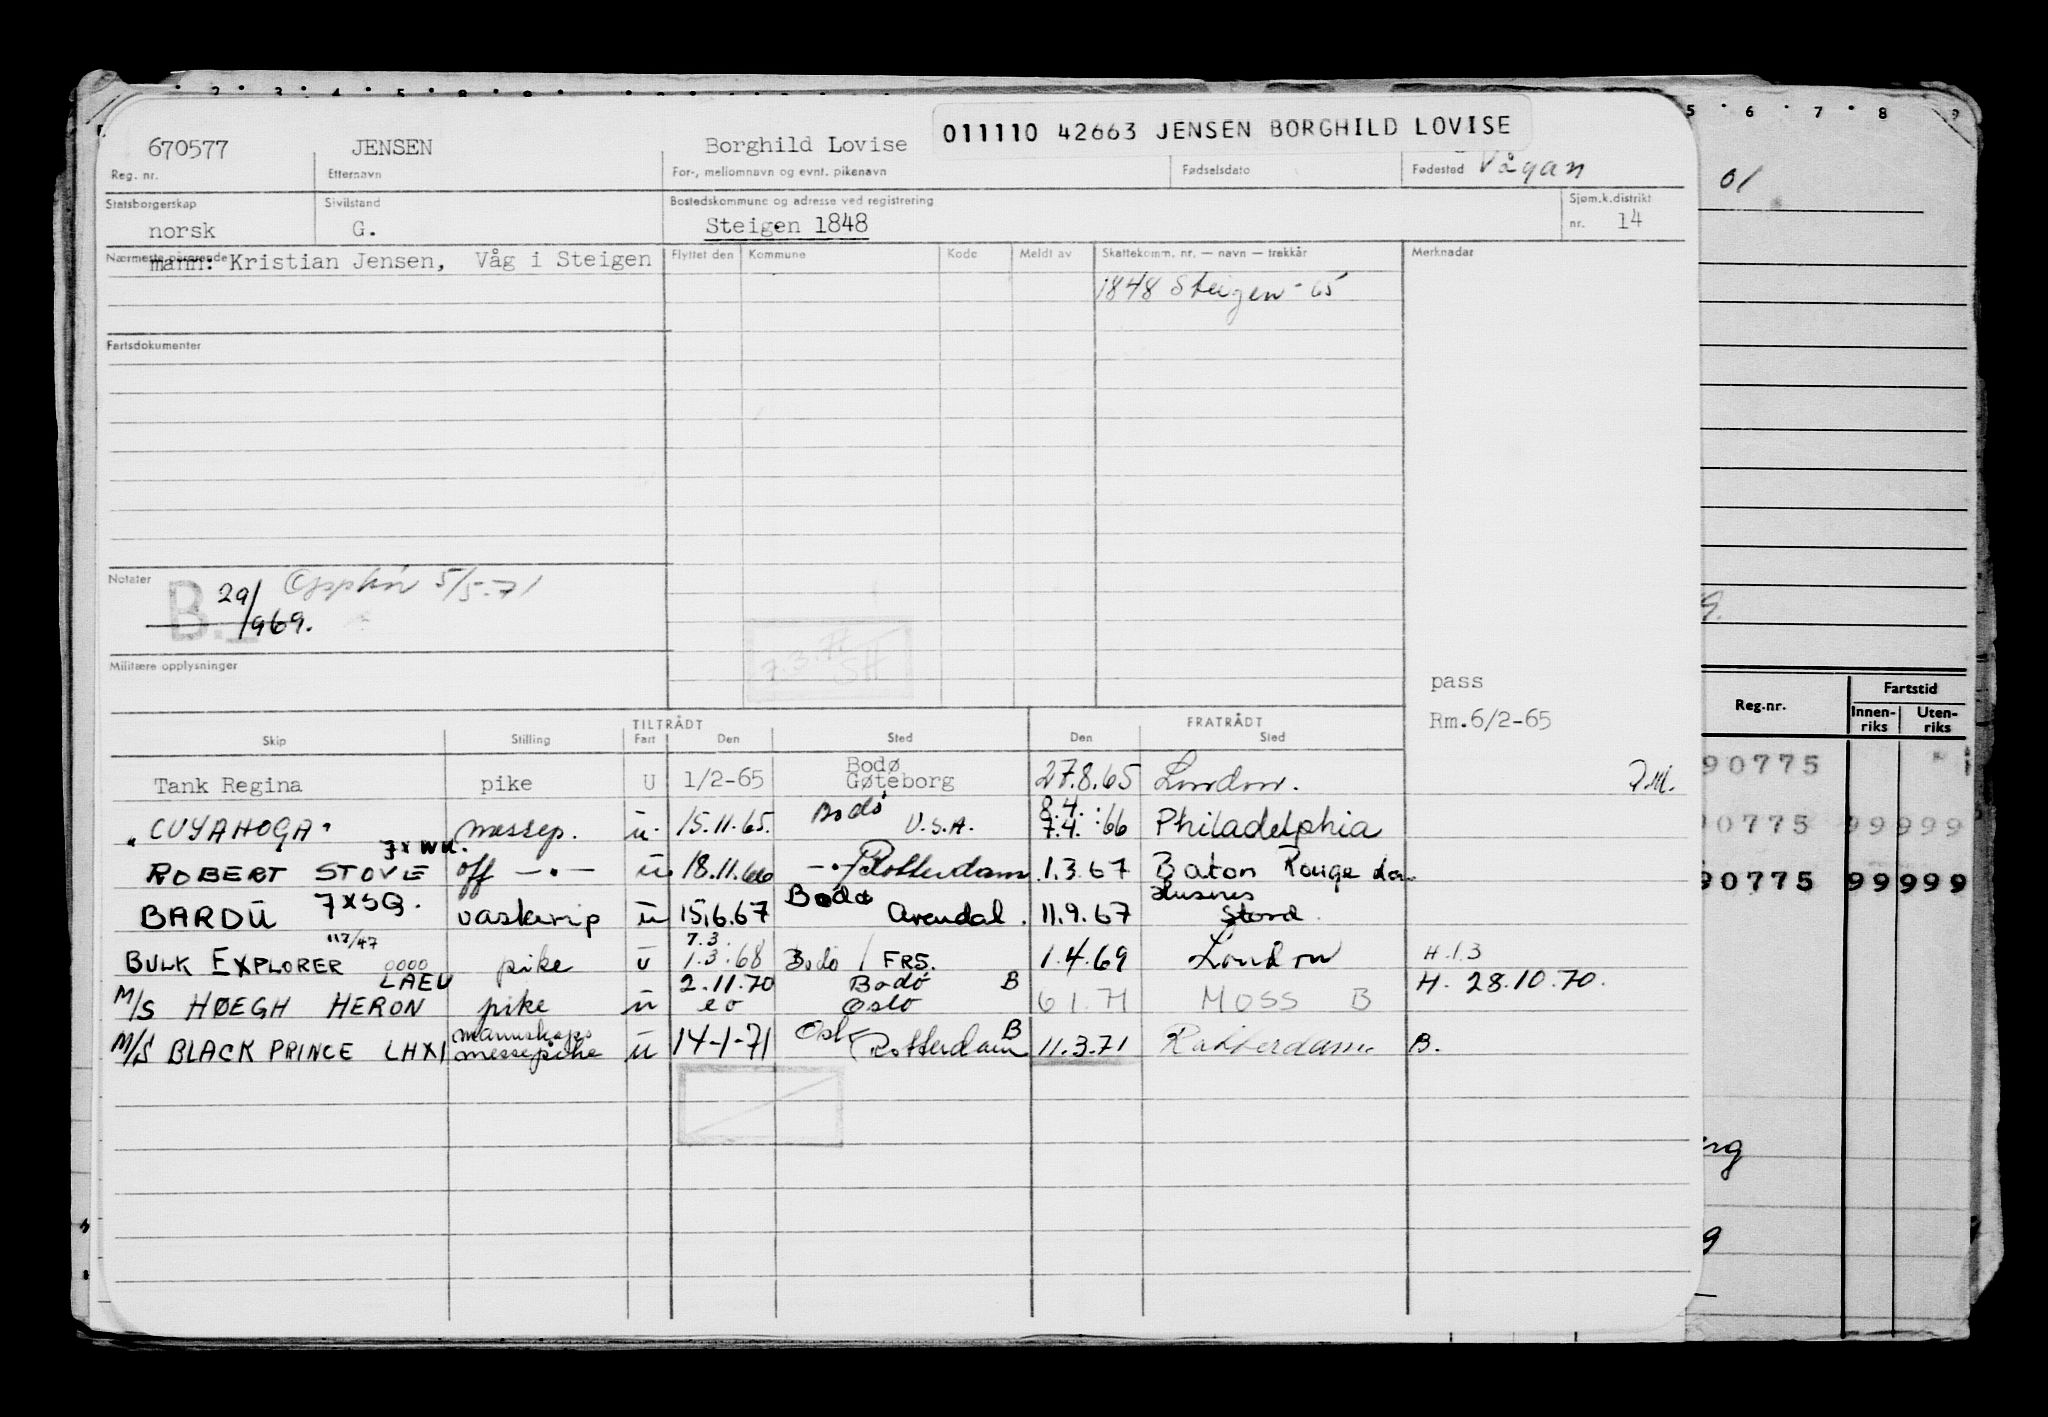 011110 42663 JENSEN BORGHILD LOVISE
670577 JENSEN Borghild Lovise
Reg. nr. Etternavn For-, mellomnavn og evnt. pikenavn Fødselsdato Fødested Vågan
Statsborgerskap Sivilstand Bostedskommune og adresse ved registrering Sjøm.k.distrikt
norsk G. Steigen 1848 nr. 14
Nærmeste pårørende Flyttet den Kommune Kode Meldt av Skattekomm. nr. — navn — trekkår Merknader
mann: Kristian Jensen, Våg i Steigen
1848 Steigen - 65
Fartsdokumenter
Notater
B. 29/1969. 5/5-71
Militære opplysninger
pass
Rm.6/2-65
TILTRÅDT FRATRÅDT
Skip Stilling Fart Den Sted Den Sted
Tank Regina pike U 1/2-65 Bodø Gøteborg 27.8.65 London.
"CUYAHOGA" messep. u. 15.11.65. Bodø U.S.A. 8.4. 7.4. :66 Philadelphia
ROBERT STOVE off —.— u 18.11.66 —.—/Rotterdam 1.3.67 Baton Rouge
BARDU 7XSQ. vaskerip u 15.6.67 Bodø Arendal. 11.9.67 Husnes Stord.
117/47
BULK EXPLORER 0000 pike u 7.3. 1.3.68 Bodø / FRS. 1.4.69 London H.1.3
LAEU
M/S HØEGH HERON pike u 2.11.70 eo Bodø B Oslo 6 1.71 MOSS B H. 28.10.70.
M/S BLACK PRINCE LHXI mannskaps messepike u 14-1-71 Oslo B Rotterdam 11.3.71 Rotterdam B.
5 6 7 8 9
01
Reg.nr. Fartstid
Innen-riks Uten-riks
90775
0775 99 999
90775 99 999